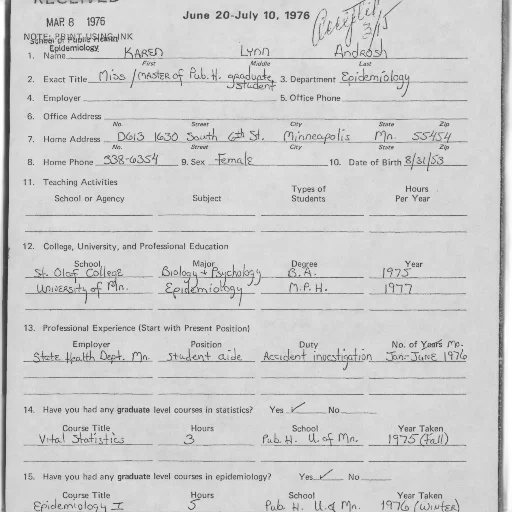 RECEIVED
MAR 8 1976
June 20-July 10, 1976
Accepted 3/15
NOTE: PRINT USING INK
School of Public Health
Epidemiology
1. Name KAREN Lynn Androsh
First Middle Last
2. Exact Title Miss / MASTER of Pub. H. graduate student 3. Department Epidemiology
4. Employer 5. Office Phone
6. Office Address
No. Street City State Zip
7. Home Address D613 1630 South 6th St. Minneapolis Mn. 55454
No. Street City State Zip
8. Home Phone 338-6354 9. Sex Female 10. Date of Birth 8/31/53
11. Teaching Activities
School or Agency Subject Types of Students Hours Per Year
12. College, University, and Professional Education
School Major Degree Year
St. Olaf College Biology + Psychology B.A. 1975
University of Mn. Epidemiology M.P.H. 1977
13. Professional Experience (Start with Present Position)
Employer Position Duty No. of Years Mo.
State Health Dept. Mn. student aide Accident investigation Jan-June 1976
14. Have you had any graduate level courses in statistics? Yes ✓ No
Course Title Hours School Year Taken
Vital Statistics 3 Pub. H. U. of Mn. 1975 (fall)
15. Have you had any graduate level courses in epidemiology? Yes ✓ No
Course Title Hours School Year Taken
Epidemiology I 5 Pub. H. U. of Mn. 1976 (winter)